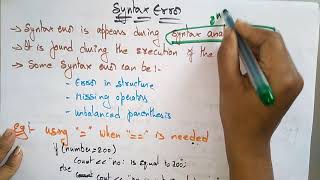 Syntax Error
2n
→ Syntax error is appears during Syntax ana
→ It is found during the execution of the
→ Some Syntax error can be :-
- Error in structure
- Missing operators
- unbalanced parenthesis
Eg:- using "=" when "==" is needed
if (number=200)
cout << "no: is equal to 200;
else
cout << "no: is not equal to 200